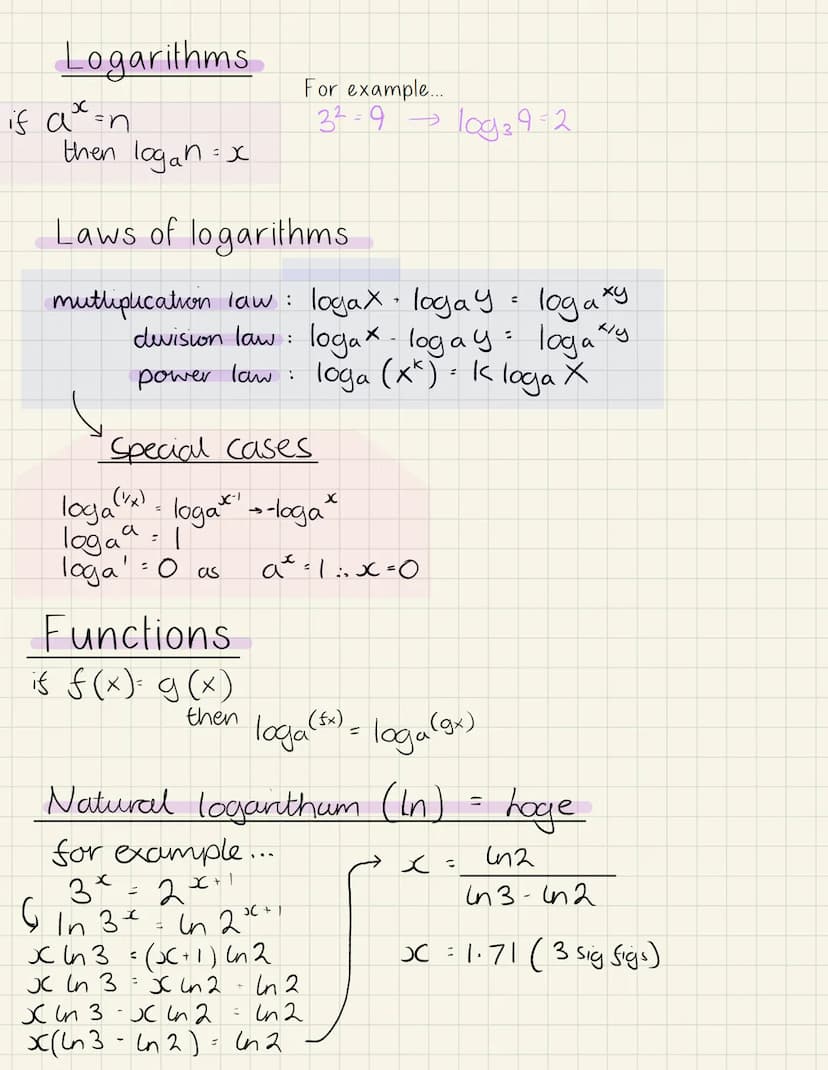 Logarithms
For example...
if aˣ = n
3² = 9 → log₃9 = 2
then logₐn = x
Laws of logarithms
mutliplication law : logₐx + logₐy = logₐxy
division law : logₐx - logₐy = logₐx/y
power law : logₐ(xᵏ) = k logₐx
Special cases
logₐ(1/x) = logₐx⁻¹ → -logₐx
logₐa = 1
logₐ1 = 0 as aˣ = 1 ∴ x = 0
Functions
if f(x) = g(x)
then logₐ(fx) = logₐ(gx)
Natural logarithum (ln) = loge
for example...
3ˣ = 2ˣ⁺¹
ln 3ˣ = ln 2ˣ⁺¹
x ln 3 = (x+1) ln 2
x ln 3 = x ln 2 + ln 2
x ln 3 - x ln 2 = ln 2
x(ln 3 - ln 2) = ln 2
→ x = ln2
ln 3 - ln 2
x = 1.71 (3 sig figs)